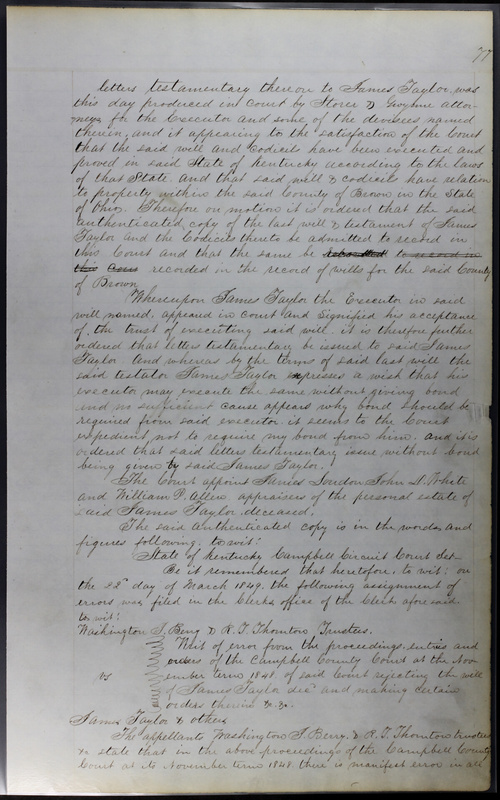 77
letters testamentary thereon to James Taylor, was
this day produced in Court by Storer & Gwynne attor-
neys for the Executor and some of the devisees named
therein, and it appearing to the satisfaction of the Court
that the said will and Codicil have been executed and
proved in said State of Kentucky according to the laws
of that State. and that said will & codicils have relation
to property within the said County of Brown in the State
of Ohio. Therefore on motion it is ordered that the said
authenticated copy of the last will & testament of James
Taylor and the Codicils thereto be admitted to record in
this Court and that the same be to record in
this recorded in the record of wills for the said County
of Brown
Whereupon James Taylor the Executor in said
will named, appeared in court and signified his acceptance
of the trust of executing said will. it is therefore further
ordered that letters testamentary be issued to said James
Taylor and whereas by the terms of said last will the
said testator James Taylor expresses a wish that his
executor may execute the same without giving bond
and no sufficient cause appears why bond should be
required from said executor. it seems to the Court
expedient not to require any bond from him. and it is
ordered that said letters testamentary issue without bond
being given by said James Taylor.
The Court appoint James Loudon John D. White
and William P. Allen appraisers of the personal estate of
said James Taylor, deceased.
The said authenticated copy is in the words and
figures following. to wit:
State of Kentucky Campbell Circuit Court Sct
Be it remembered that heretofore, to wit: on
the 22nd day of March 1849. the following assignment of
errors was filed in the Clerks office of the Clerk aforesaid.
to wit:
Washington S. Berry & R. T. Thornton Trustees.
Writ of error from the proceedings, entries and
orders of the Campbell County Court at the Nov-
vs ember term 1848. of said Court rejecting the will
of James Taylor decd and making certain
orders therein &c &c.
James Taylor & others
The appellants Washington S. Berry & R. T. Thornton trustees
&c state that in the above proceedings of the Campbell County
Court at its November term 1848 there is manifest error in all